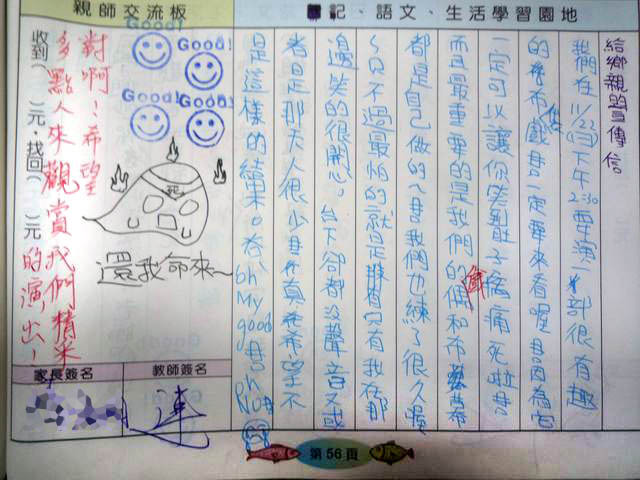 記、語文、生活學習園地
給鄉親的宣傳信
我們在11/22下午2:30要演一部很有趣
的布偶戲一定要來看喔因為它
一定可以讓你笑到肚子痛痛死啦
而且最重要的是我們的偶和布幕
都是自己做的~我們也練了很久喔
~只不過最怕的就是只有我在那
邊笑的很開心。台下卻都沒聲音又或
者是那天人很少真希望不
是這樣的結果。oh My good oh No
親師交流板
Good!
Good!
Good!
Good!
死
還我命來~
對啊!希望
多點人來觀賞我們精采
的演出!
收到( )元，找回( )元
家長簽名
教師簽名
第56頁